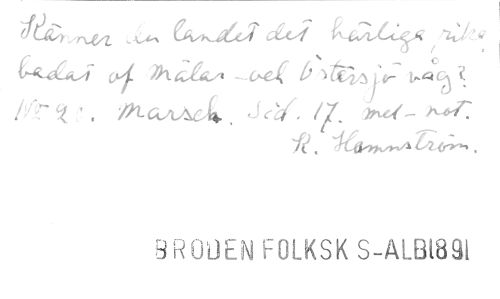 Känner du landet det härliga, rika,
badat af Mälar- och Östersjö våg?
No 20. Marsch. Sid. 17. mel-not.
R. Hamnström.
BRODEN FOLKSK S-ALB1891